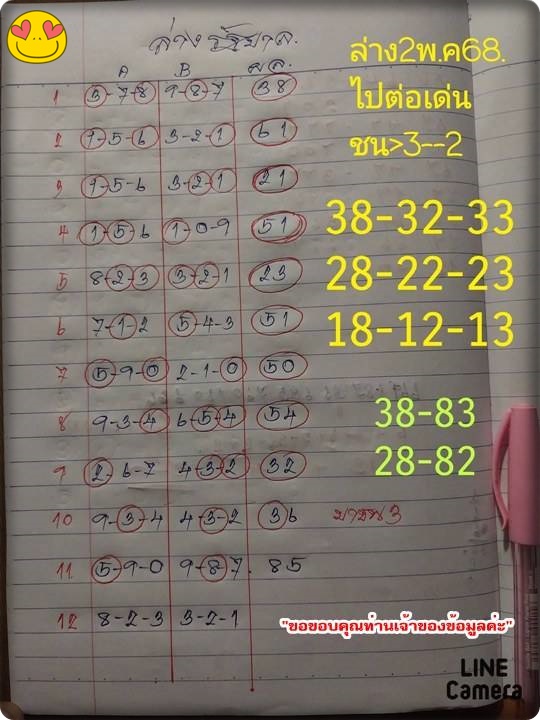 ล่างรัฐบาล.
A B ผล.
1 3-7-8 9-8-7 38
2 1-5-6 3-2-1 61
3 1-5-6 3-2-1 21
4 1-5-6 1-0-9 51
5 8-2-3 3-2-1 23
6 7-1-2 5-4-3 51
7 5-9-0 2-1-0 50
8 9-3-4 6-5-4 54
9 2-6-7 4-3-2 32
10 9-3-4 4-3-2 36 มาบน3
11 5-9-0 9-8-7. 85
12 8-2-3 3-2-1
ล่าง2พ.ค68.
ไปต่อเด่น
ชน>3--2
38-32-33
28-22-23
18-12-13
38-83
28-82
"ขอขอบคุณท่านเจ้าของข้อมูลค่ะ"
LINE
Camera